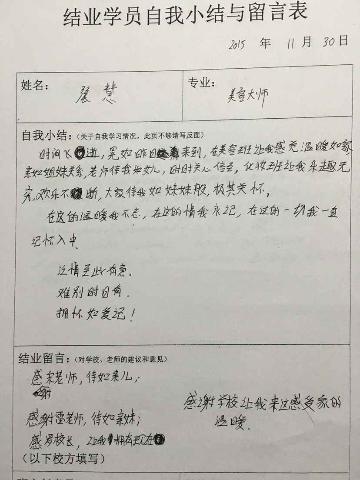 结业学员自我小结与留言表
2015 年 11 月 30 日
姓名: 展慧 专业: 美容大师
自我小结:(关于自我学习情况,此页不够请写反面)
时间飞逝,晃如昨日来到,在美容班让我感觉温暖如家
亲如姐妹关系,老师待我如女儿,时时关心备至,化妆班让我乐趣无
穷,欢乐不断,大叔待我如妹妹般,极其关怀。
在这的温暖我不忘,在这的情我永记,在这的一切我一直
记怀入中
这情至此有意.
难别时日有.
拥怀如爱记!
结业留言:(对学校、老师的建议和意见)
感谢宋老师,待如亲儿;
感谢雷老师,待如亲妹;
感谢学校让我来过感受家的
温暖.
感 校长,让我拥有现在
(以下校方填写)